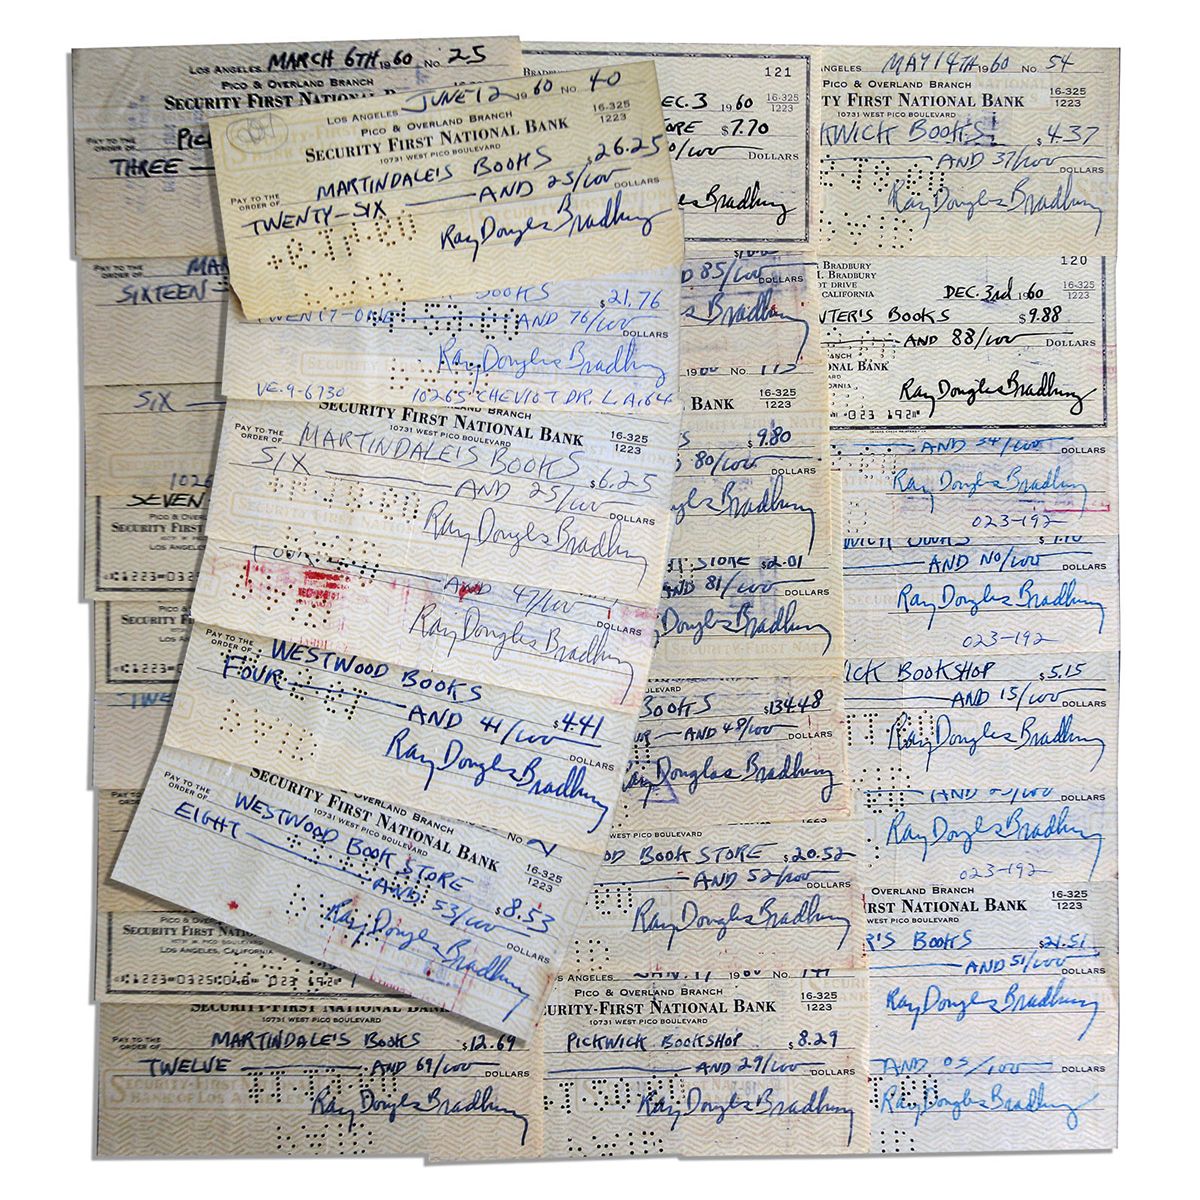 LOS ANGELES MARCH 6TH 1960 No. 25
PICO & OVERLAND BRANCH
SECURITY-FIRST NATIONAL
PAY TO THE
ORDER OF
THREE
LOS ANGELES JUNE 12 1960 No. 40
PICO & OVERLAND BRANCH 16-325
SECURITY-FIRST NATIONAL BANK 1223
10731 WEST PICO BOULEVARD
PAY TO THE
ORDER OF MARTINDALE'S BOOKS $26.25
TWENTY-SIX AND 25/100 DOLLARS
Ray Douglas Bradbury
BOOKS $21.76
TWENTY-ONE AND 76/100 DOLLARS
Ray Douglas Bradbury
VE.9-6730 10265 CHEVIOT DR. L.A. 64
BRANCH
SECURITY FIRST NATIONAL BANK 16-325
10731 WEST PICO BOULEVARD 1223
PAY TO THE
ORDER OF MARTINDALE'S BOOKS $6.25
SIX AND 25/100 DOLLARS
Ray Douglas Bradbury
AND 47/100 DOLLARS
Ray Douglas Bradbury
PAY TO THE
ORDER OF WESTWOOD BOOKS $4.41
FOUR AND 41/100 DOLLARS
Ray Douglas Bradbury
& OVERLAND BRANCH No.
SECURITY FIRST NATIONAL BANK 16-325
10731 WEST PICO BOULEVARD 1223
PAY TO THE
ORDER OF WESTWOOD BOOK STORE $8.53
EIGHT AND 53/100 DOLLARS
Ray Douglas Bradbury
PAY TO THE
ORDER OF MAR
SIXTEEN
SIX
1026
SEVEN
PICO & OVER
SECURITY FIRST
LOS ANGELES
PICO &
SECURITY FI
LOS A
TWE
PICO & OVE
SECURITY FIRST NATIO
LOS ANGELES, CALIFORNIA
10731 WEST PICO BOULEVARD
PAY TO THE
ORDER OF MARTINDALE'S BOOKS $12.69
TWELVE AND 69/100 DOLLARS
SECURITY-FIRST NATIONAL
BANK OF LOS ANGELES
Ray Douglas Bradbury
BRADBU
121
EC. 3 1960 16-325
1223
ORE $7.70
0/100 DOLLARS
Bradbury
D 85/100 DOLLARS
Bradbury
1960 No. 113
BANK 16-325
1223
$9.80
80/100 DOLLARS
Douglas Bradbury
STORE $2.01
AND 81/100 DOLLARS
Douglas Bradbury
BOOKS $134.48
AND 48/100 DOLLARS
Ray Douglas Bradbury
WEST PICO BOULEVARD
OD BOOK STORE $20.52
AND 52/100 DOLLARS
Ray Douglas Bradbury
LOS ANGELES JAN. 17 1960 No.
PICO & OVERLAND BRANCH 16-325
URITY-FIRST NATIONAL BANK 1223
10731 WEST PICO BOULEVARD
PICKWICK BOOKSHOP $8.29
AND 29/100 DOLLARS
Ray Douglas Bradbury
ANGELES MAY 14TH 1960 No. 54
PICO & OVERLAND BRANCH 16-325
SECURITY-FIRST NATIONAL BANK 1223
10731 WEST PICO BOULEVARD
KWICK BOOKS $4.37
AND 37/100 DOLLARS
Ray Douglas Bradbury
BRADBURY 120
BRADBURY
OT DRIVE
CALIFORNIA
DEC. 3rd 1960 16-325
1223
NTER'S BOOKS $9.88
AND 88/100 DOLLARS
NAL BANK
Ray Douglas Bradbury
AND 54/100 DOLLARS
Ray Douglas Bradbury
023-192
AND NO/100 DOLLARS
Ray Douglas Bradbury
023-192
ICK BOOKSHOP $5.15
AND 15/100 DOLLARS
Ray Douglas Bradbury
DOLLARS
Ray Douglas Bradbury
023-192
OVERLAND BRANCH 16-325
RST NATIONAL BANK 1223
WEST PICO BOULEVARD
R'S BOOKS $21.51
AND 51/100 DOLLARS
Ray Douglas Bradbury
AND 05/100 DOLLARS
Ray Douglas Bradbury